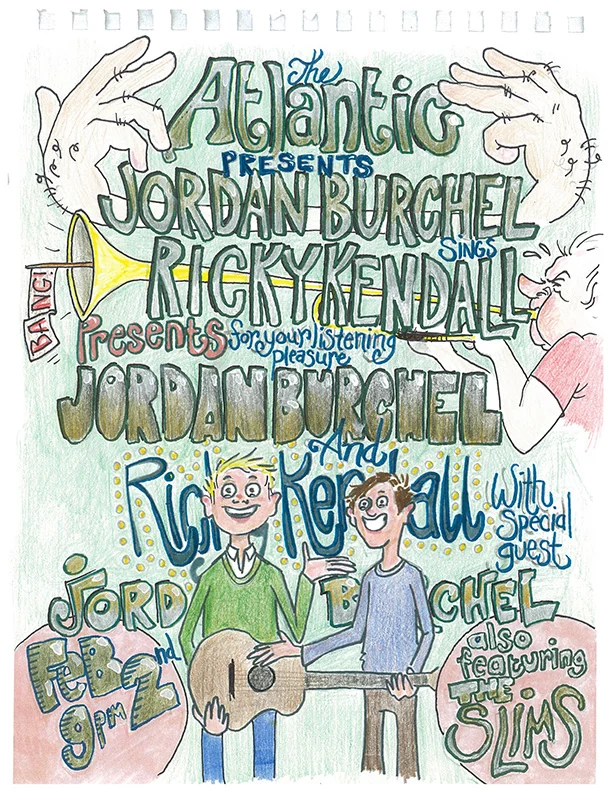 The
Atlantic
PRESENTS
JORDAN BURCHEL
SINGS
RICKY KENDALL
BANG!
Presents for your listening
pleasure
JORDAN BURCHEL
And
Ricky Kendall
With
Special
guest
JORD B CHEL
FEB 2nd
9 PM
also
featuring
THE
SLIMS